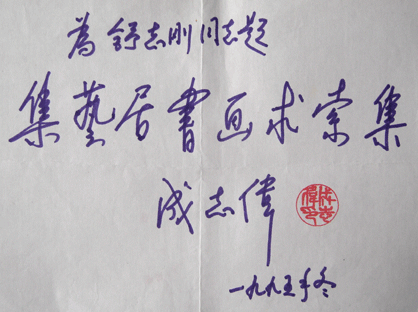 為舒志刚同志题
集藝居書画求索集
成志偉
一九九五年冬